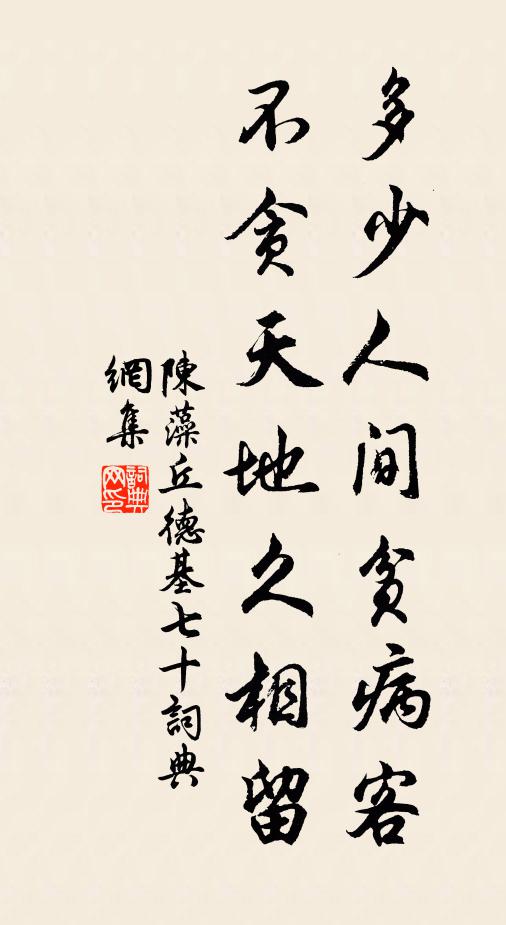 多少人間貧病客
不貪天地久相留
陳藻丘德基七十詞典
網集
詞典
网印